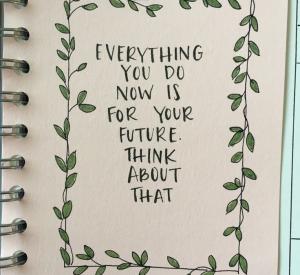 EVERYTHING
YOU DO
NOW IS
FOR YOUR
FUTURE.
THINK
ABOUT
THAT